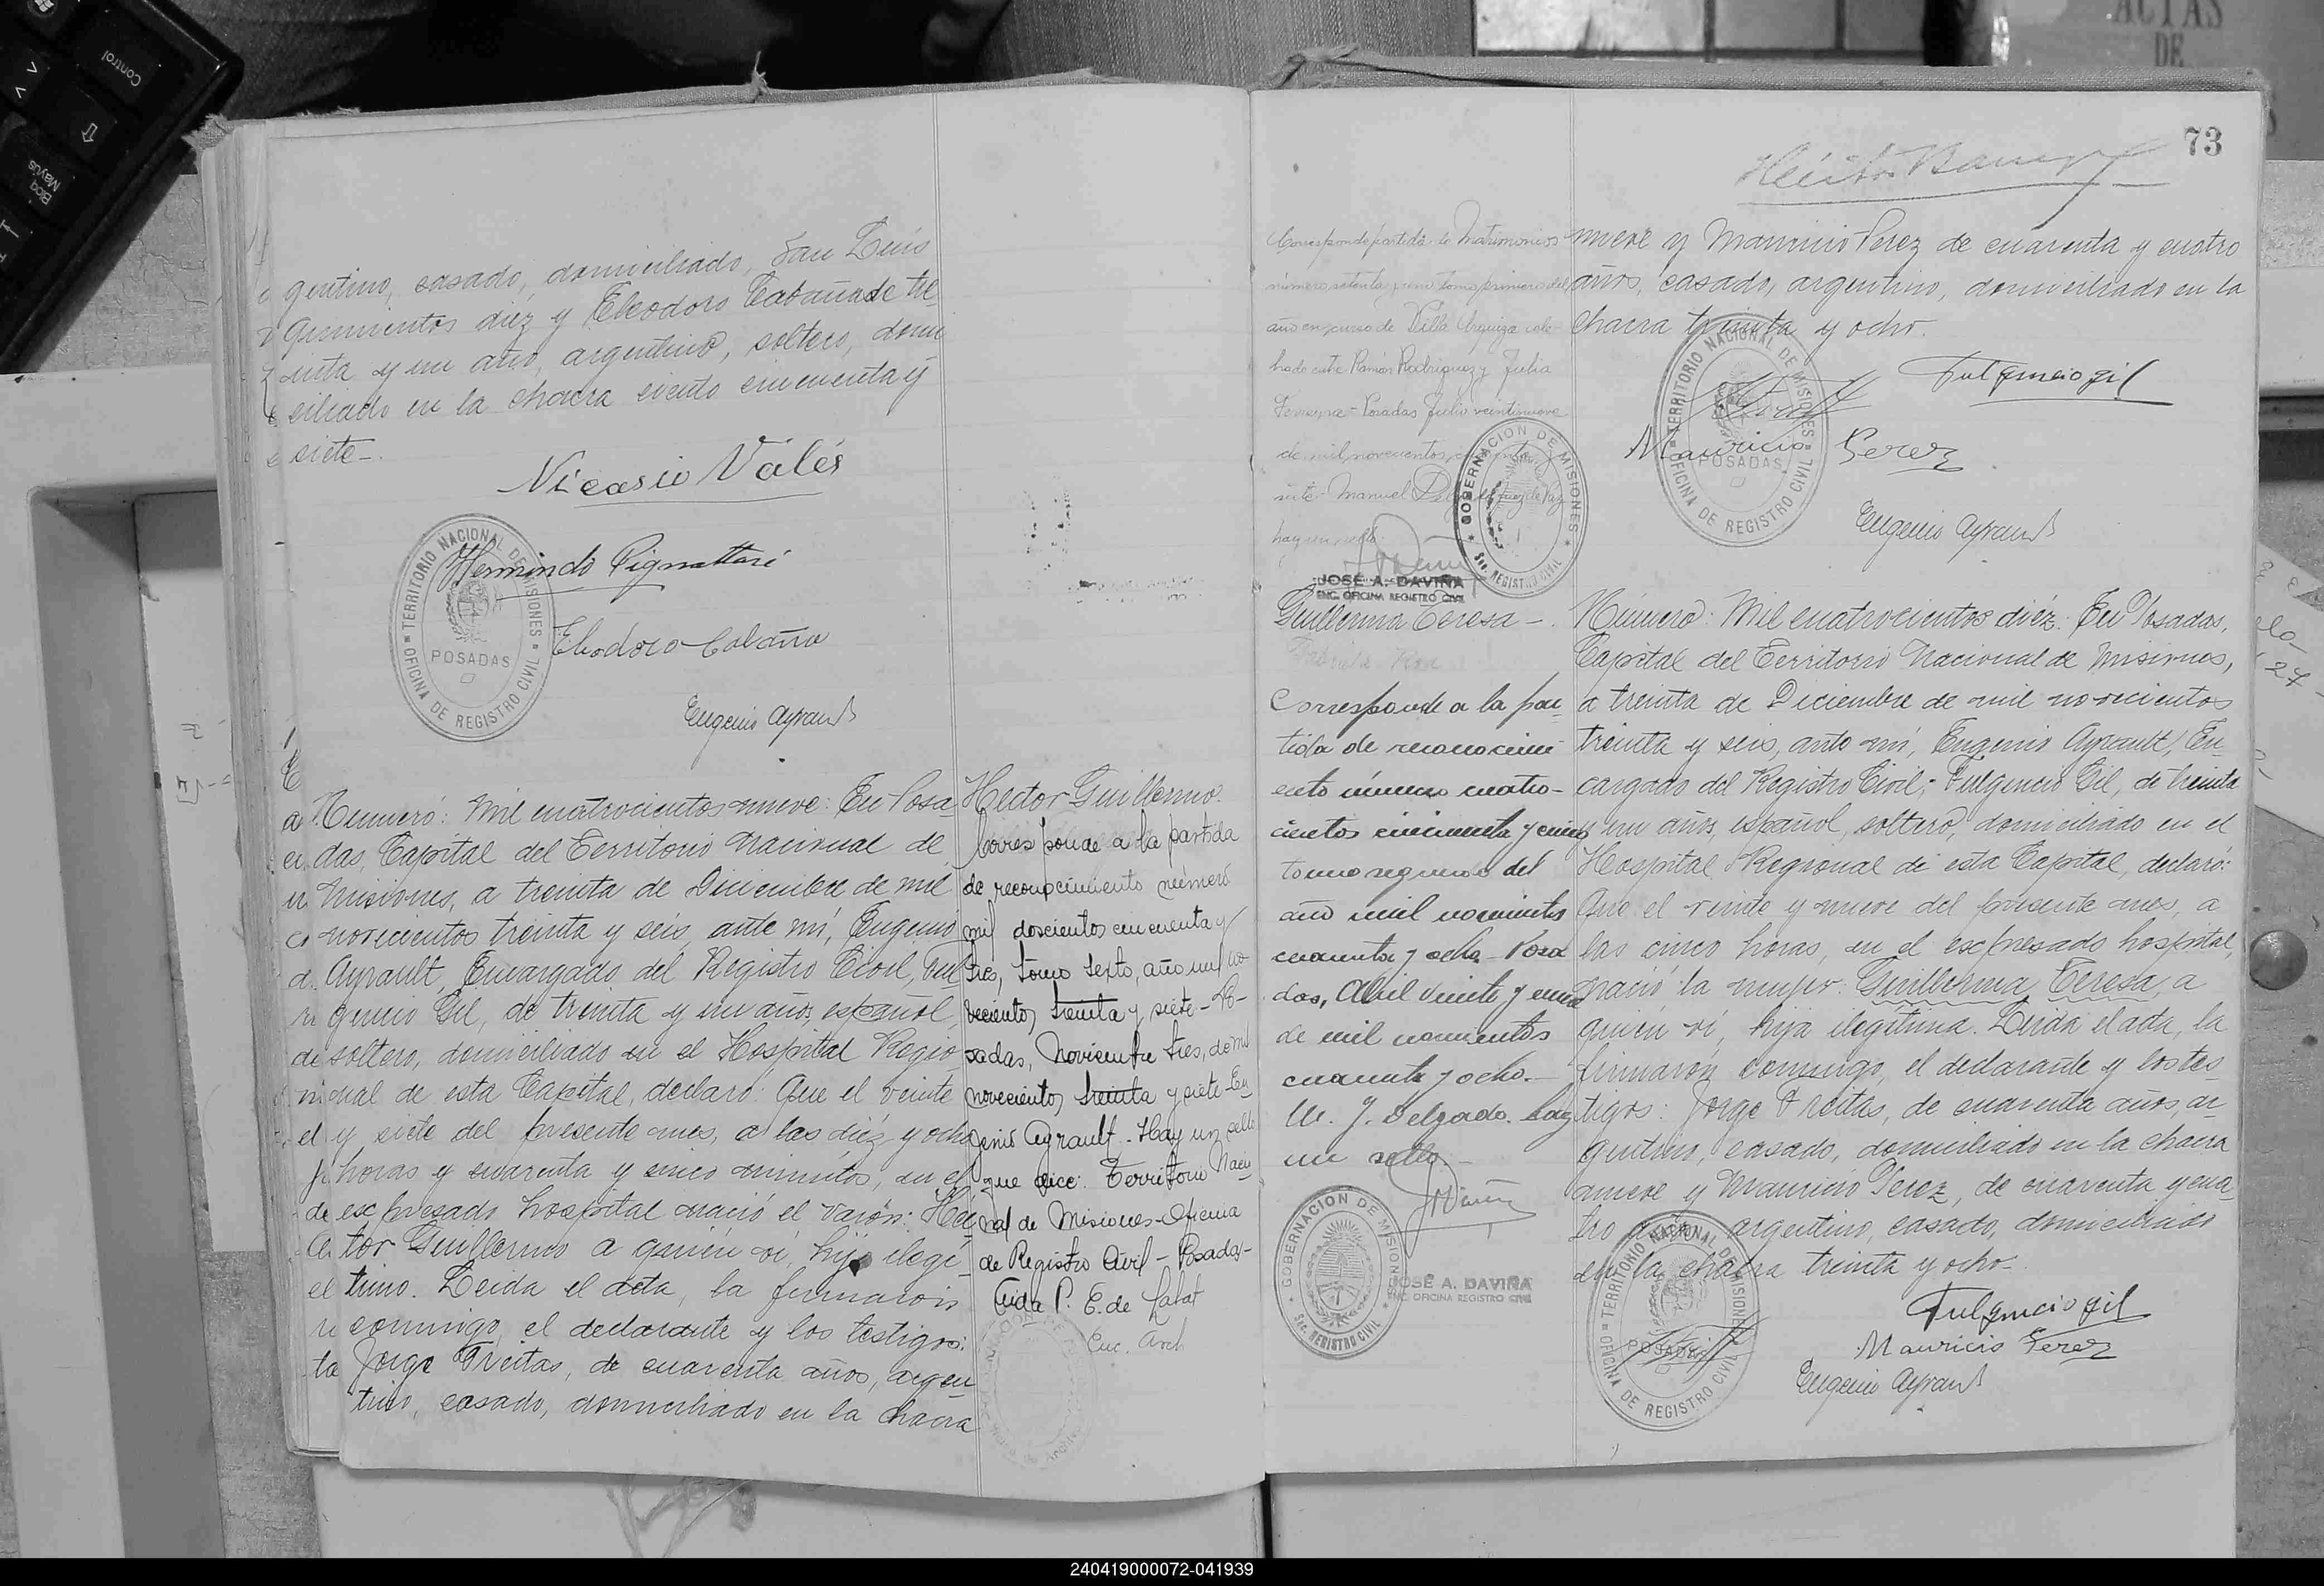 gentino, casado, domiciliado, San Luis
quinientos diez y Eleodoro Cabaña de tre
inta y un año, argentino, soltero, domi
ciliado en la chacra ciento cincuenta y
siete-.
Nicasio Valés
Hermindo Pignattari
TERRITORIO NACIONAL DE MISIONES
OFICINA DE REGISTRO CIVIL
POSADAS
Eleodoro Cabaña
Eugenio Ayrault
Número: Mil cuatrocientos nueve: En Posa
das, Capital del Territorio Nacional de
Misiones, a treinta de Diciembre de mil
novecientos treinta y seis, ante mí, Eugenio
Ayrault, Encargado del Registro Civil, Ful
gencio Gil, de treinta y un años, español,
soltero, domiciliado en el Hospital Regio
nal de esta Capital, declaró: Que el veinte
y siete del presente mes, a las diéz y ocho
horas y cuarenta y cinco minutos, en el
expresado hospital nació el varón: Héc
tor Guillermo a quién ví, hijo ilegí
timo. Leida el acta, la firmaron
conmigo, el declarante y los testigos:
Jorge Freitas, de cuarenta años, argen
tino, casado, domiciliado en la chacra
Hector Guillermo.
Corresponde a la partida
de reconocimiento número
mil doscientos cincuenta y
tres, tomo sexto, año mil no
vecientos treinta y siete - Po-
sadas, Noviembre tres, de mil
novecientos treinta y siete - Eu
genio Ayrault - Hay un sello
que dice: Territorio Nacio
nal de Misiones - Oficina
de Registro Civil - Posadas -
Aida P. E. de
Enc. Arch
73
Héctor
Corresponde partida de Matrimonios
número setenta y uno tomo primero del
año en curso de Villa Urquiza cele-
brado entre Ramón Rodriguez y Julia
Posadas Julio veintinueve
de mil novecientos
siete - Manuel
hay un sello
GOBERNACION DE MISIONES
Sec. REGISTRO CIVIL
JOSÉ A. DAVIÑA
ENC. OFICINA REGISTRO CIVIL
nueve y Mauricio Perez de cuarenta y cuatro
años, casado, argentino, domiciliado en la
chacra treinta y ocho.
TERRITORIO NACIONAL DE MISIONES
OFICINA DE REGISTRO CIVIL
POSADAS
Fulgencio gil
Mauricio Perez
Eugenio Ayrault
Guillerma Teresa -
Corresponde a la par
tida de reconocimi
ento número cuatro-
cientos cincuenta y cinco
tomo segundo del
año mil novecientos
cuarenta y ocho - Posa
das, Abril veinte y
de mil novecientos
cuarenta y ocho.-
M. J. Delgado. hay
un sello -
GOBERNACION DE MISIONES
Sec. REGISTRO CIVIL
JOSÉ A. DAVIÑA
ENC. OFICINA REGISTRO CIVIL
Número: Mil cuatrocientos diéz: En Posadas,
Capital del Territorio Nacional de Misiones,
a treinta de Diciembre de mil novecientos
treinta y seis, ante mí, Eugenio Ayrault, En
cargado del Registro Civil; Fulgencio Gil, de treinta
y un años, español, soltero, domiciliado en el
Hospital Regional de esta Capital, declaró:
Que el veinte y nueve del presente mes, a
las cinco horas, en el expresado hospital,
nació la mujer: Guillerma Teresa, a
quién ví, hija ilegítima. Leida el acta, la
firmarón conmigo, el declarante y los tes
tigos: Jorge Freitas, de cuarenta años, ar
gentino, casado, domiciliado en la chacra
nueve y Mauricio Perez, de cuarenta y cua
tro años, argentino, casado, domiciliado
en la chacra treinta y ocho-
TERRITORIO NACIONAL DE MISIONES
OFICINA DE REGISTRO CIVIL
POSADAS
Fulgencio gil
Mauricio Perez
Eugenio Ayrault
Control
Bloq
Mayús
ACTAS
DE
240419000072-041939